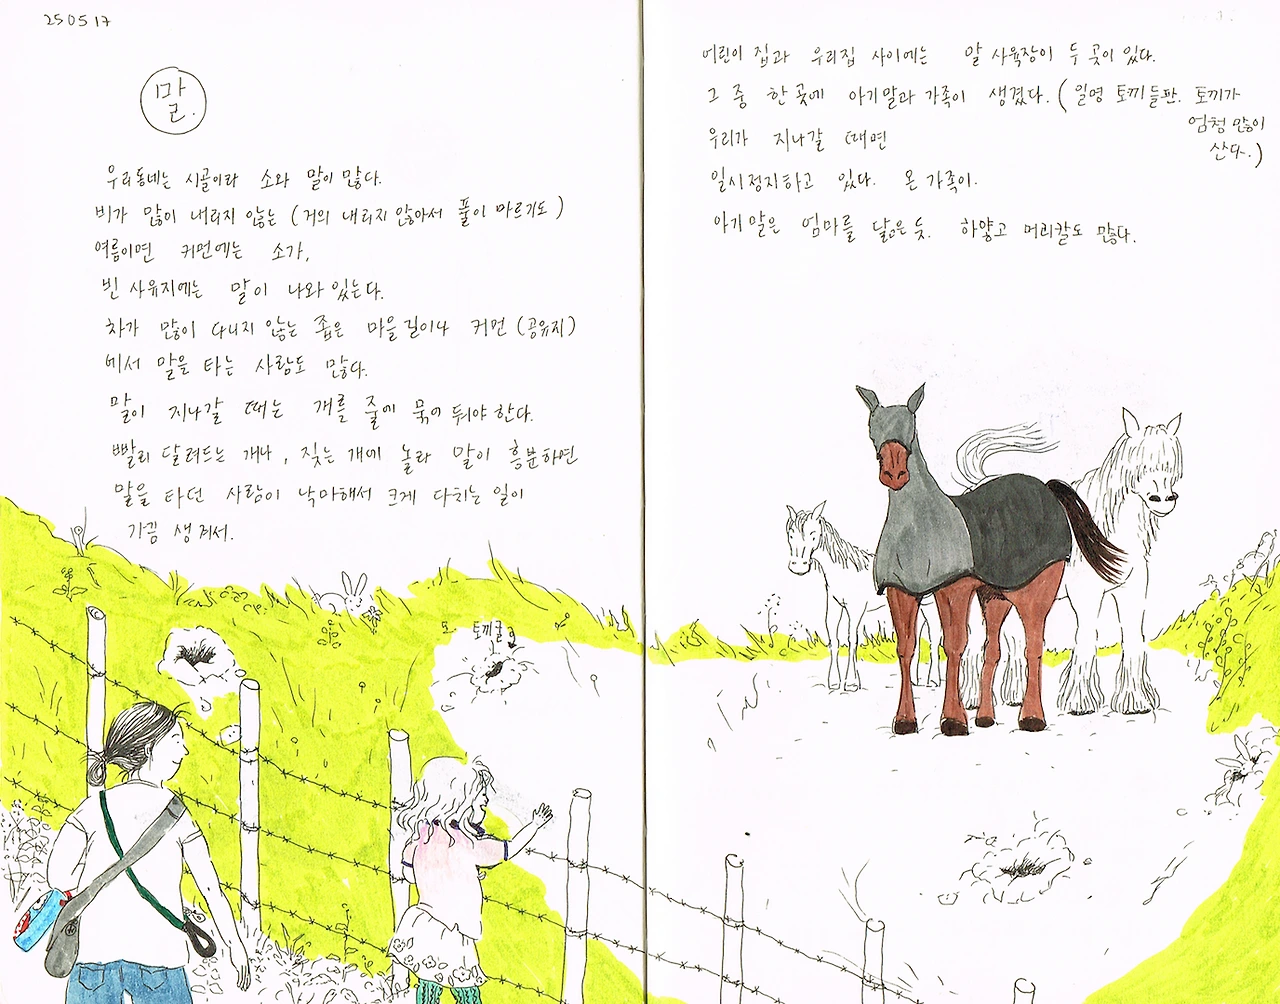 250517
말.
우리동네는 시골이라 소와 말이 많다.
비가 많이 내리지 않는 (거의 내리지 않아서 풀이 마르기도)
여름이면 커먼에는 소가,
빈 사유지에는 말이 나와 있는다.
차가 많이 다니지 않는 좁은 마을길이나 커먼 (공유지)
에서 말을 타는 사람도 많다.
말이 지나갈 때는 개를 줄에 묶어 둬야 한다.
빨리 달려드는 개나, 짖는 개에 놀라 말이 흥분하면
말을 타던 사람이 낙마해서 크게 다치는 일이
가끔 생겨서.
또 토끼굴
어린이 집과 우리집 사이에는 말 사육장이 두 곳이 있다.
그 중 한 곳에 아기말과 가족이 생겼다. (일명 토끼들판. 토끼가
엄청 많이
산다.)
우리가 지나갈 때면
일시정지하고 있다. 온 가족이.
아기말은 엄마를 닮은 듯. 하얗고 머리칼도 많다.